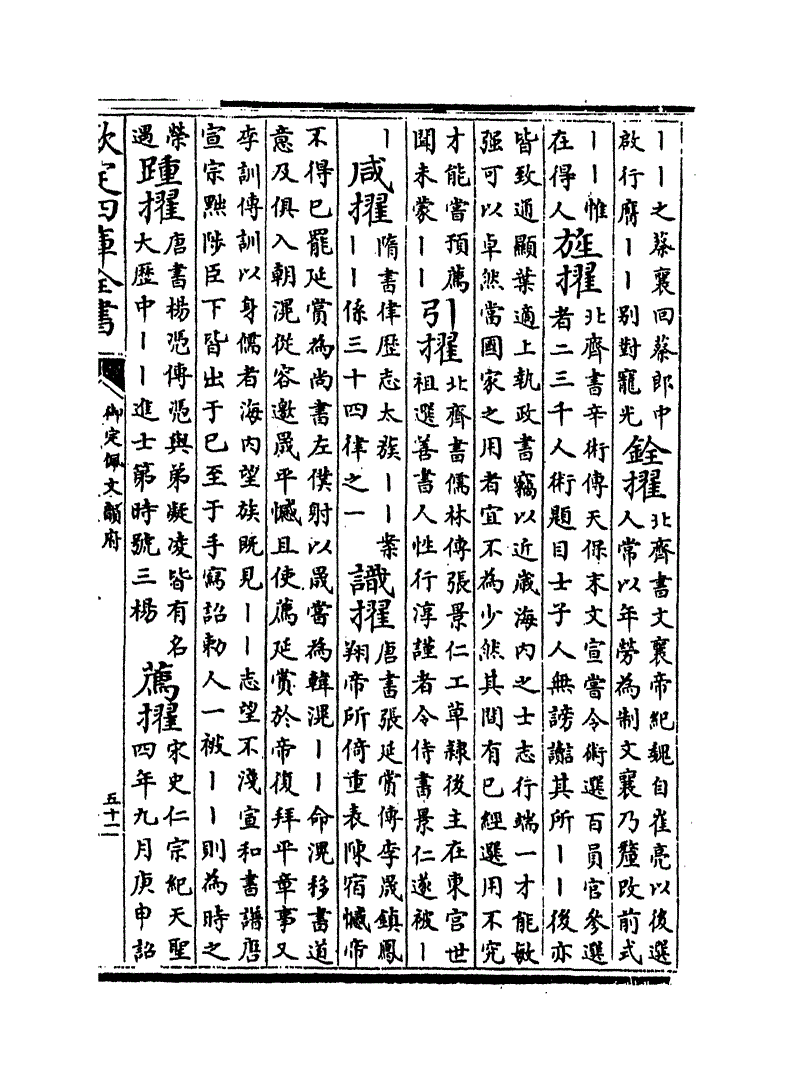 丨丨之蔡襄回蔡郎中
啟行膺丨丨别對寵光
銓擢
北齊書文襄帝紀魏自崔亮以後選
人常以年勞為制文襄乃釐改前式
丨丨惟
在得人
旌擢
北齊書辛術傳天保末文宣嘗令術選百員官參選
者二三千人術題目士子人無謗讟其所丨丨後亦
皆致通顯葉適上執政書竊以近歲海内之士志行端一才能敏
强可以卓然當國家之用者宜不為少然其間有已經選用不究
才能嘗預薦
聞未蒙丨丨
引擢
北齊書儒林傳張景仁工草隸後主在東宮世
祖選善書人性行淳謹者令侍書景仁遂被丨
丨
咸擢
隋書律歴志太蔟丨丨業
丨丨係三十四律之一
識擢
唐書張延賞傳李晟鎮鳳
翔帝所倚重表陳宿憾帝
不得已罷延賞為尚書左僕射以晟嘗為韓滉丨丨命滉移書道
意及俱入朝滉從容邀晟平憾且使薦延賞於帝復拜平章事又
李訓傳訓以身儒者海内望族既見丨丨志望不淺宣和書譜唐
宣宗黜陟臣下皆出于已至于手寫詔勅人一被丨丨則為時之
榮
遇
踵擢
唐書楊憑傳憑與弟凝凌皆有名
大歴中丨丨進士第時號三楊
薦擢
宋史仁宗紀天聖
四年九月庚申詔
欽定四庫全書
御定佩文韻府
五十二